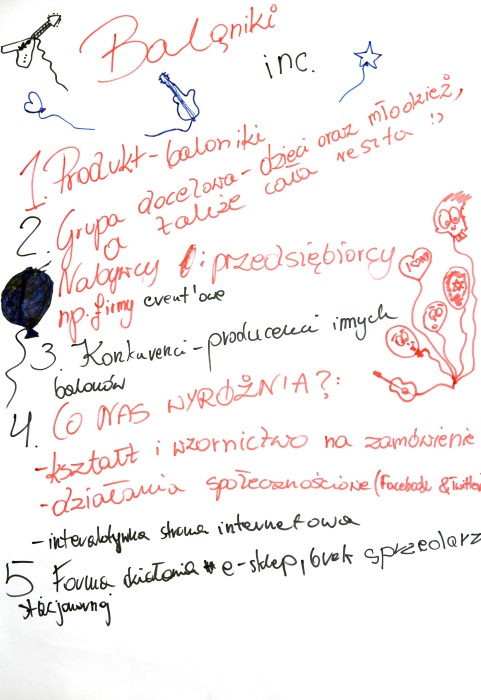 Baloniki
inc.
1. Produkt - baloniki
2. Grupa docelowa - dzieci oraz młodzież,
a także cała reszta :)
Nabywcy : przedsiębiorcy
np. firmy event'owe
3. Konkurenci - producenci innych
balonów
4. CO NAS WYRÓŻNIA?:
- kształt i wzornictwo na zamówienie
- działania społecznościowe (Facebook & Twitter
- interaktywna strona internetowa
5 Forma działania e-sklep, brak sprzedarz
stacjonarnej